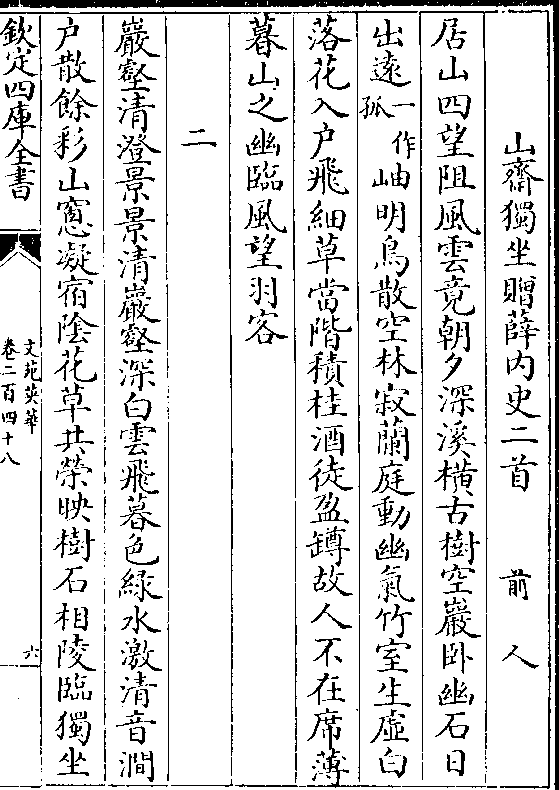 山齋獨坐贈薛内史二首　前人
居山四望阻風雲竟朝夕深溪横古樹空巖卧幽石日
出遠一作孤岫明鳥散空林寂蘭庭動幽氣竹室生虚白
落花入户飛細草當階積桂酒徒盈罇故人不在席薄
暮山之幽臨風望羽客
二
巖壑清澄景景清巖壑深白雲飛暮色緑水激清音澗
户散餘彩山窻凝宿陰花草共榮映樹石相陵臨獨坐
欽定四庫全書
文苑英華
卷二百四十八
六